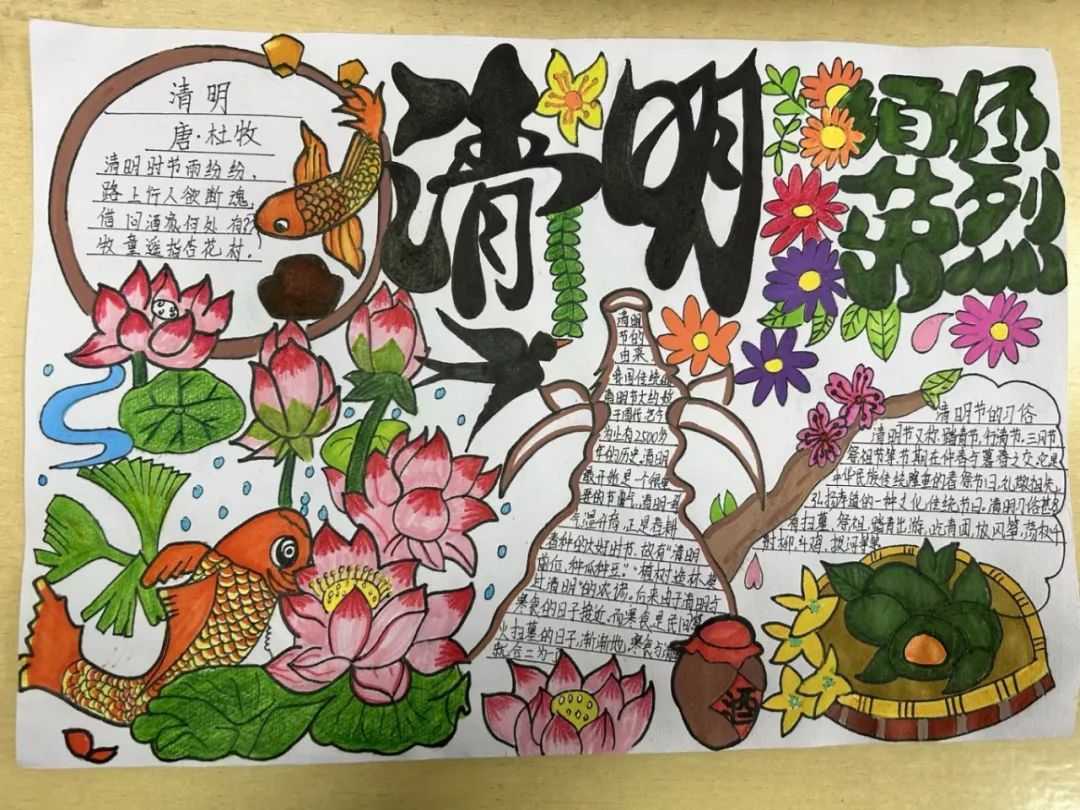 清明
唐·杜牧
清明时节雨纷纷，
路上行人欲断魂，
借问酒家何处有？
牧童遥指杏花村。
清明
缅怀
英烈
清明
节的
由来
我国传统的
清明节大约始
于周代，已今
为止有2500多
年的历史，清明
最开始是一个很重
要的节气，清明一到
气温升高，正是春耕
春种的大好时节，故有“清明
前后，种瓜种豆。”“植树造林，莫
过清明”的农谚，后来由于清明与
寒食的日子接近，而寒食是民间禁
火扫墓的日子，渐渐地，寒食与清
就合二为了
清明节的习俗
清明节又称踏青节、行清节、三月节
祭祖节等节期在仲春与暮春之交，它是
中华民族传统隆重的春祭节日，礼敬祖先，
弘扬孝道的一种文化传统节日，清明习俗甚多
有扫墓、祭祖、踏青出游、吃青团、放风筝、荡秋千
射柳、斗鸡、拔河等等
酒